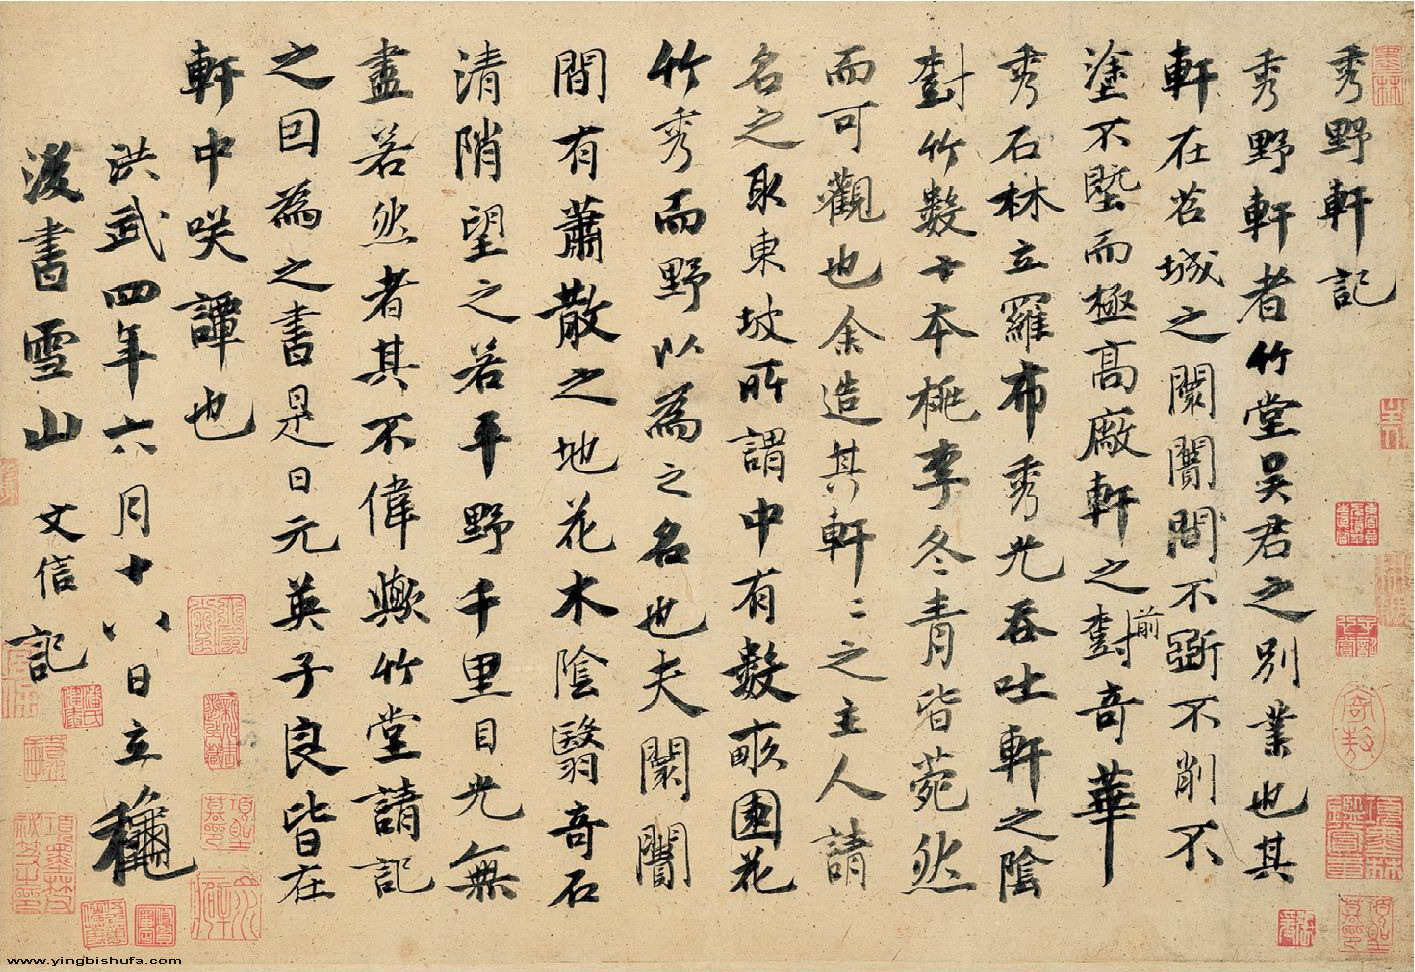 秀野軒記
秀野軒者竹堂吳君之別業也其
軒在苕城之闤闠間不斵不削不
塗不墍而極高敞軒之對前奇華
秀石林立羅布秀光吞吐軒之陰
對竹數十本桃李冬青皆菀然
而可觀也余造其軒〻之主人請
名之取東坡所謂中有數畝園花
竹秀而野以為之名也夫闤闠
間有蕭散之地花木陰翳奇石
清隋望之若平野千里目光無
盡若然者其不偉歟竹堂請記
之因為之書是日元英子良皆在
軒中咲譚也
洪武四年六月十八日立穐
後書雪山 文信 記
www.yingbishufa.com